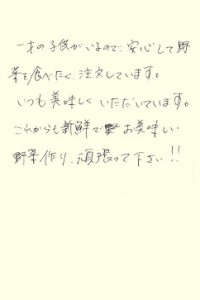 一才の子供がいるので、安心して野
菜を食べたく、注文しています。
いつも美味しくいただいています。
これからも新鮮で お美味しい
野菜作り、頑張って下さい!!